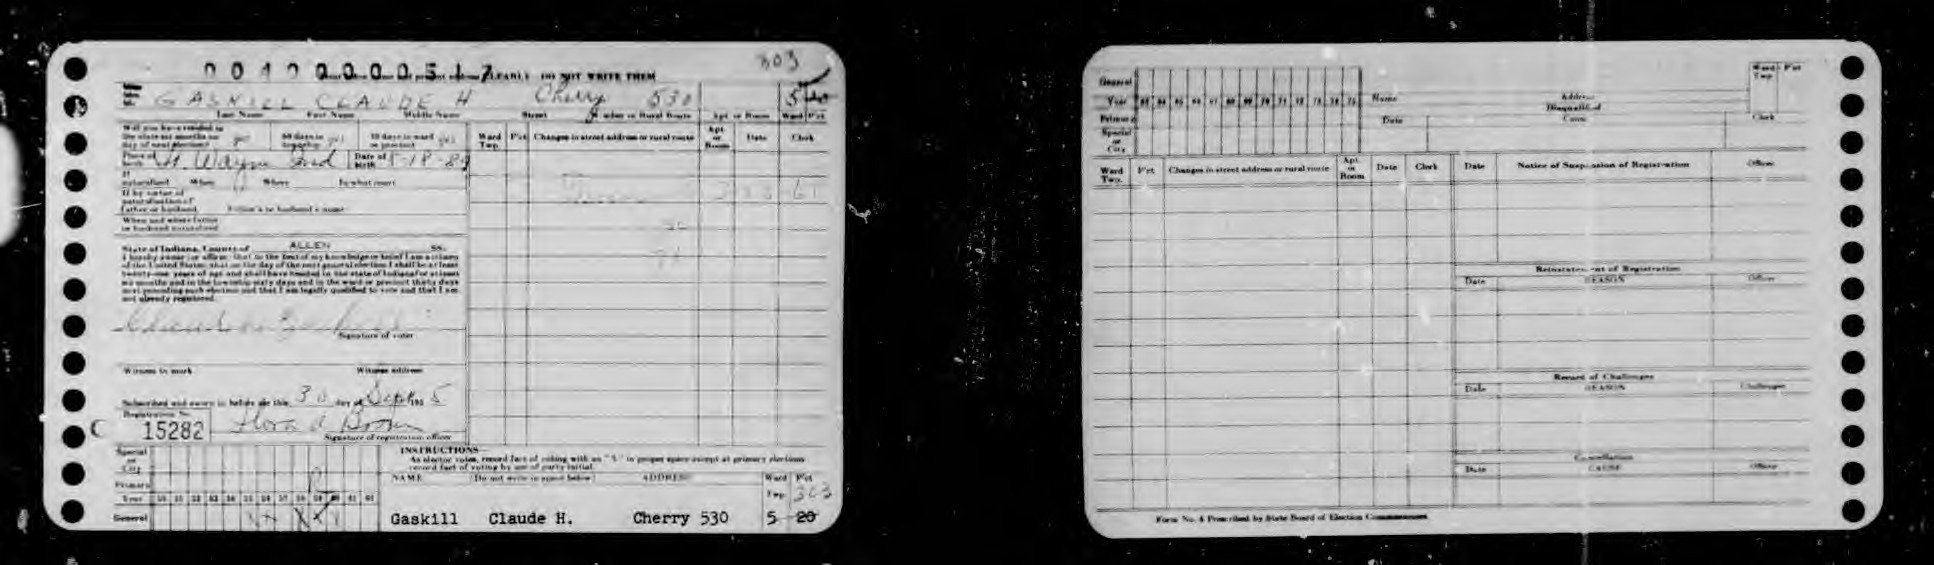 803
PLEARLY DO NOT WRITE THEM
GASKILL CLAUDE H Cherry 530 5
Last Name First Name Middle Name Street Number or Rural Route Apt. or Room Ward P'ct
Will you have resided in the state six months on day of next election? yes 60 days in township yes 30 days in ward or precinct yes
Place of birth Ft. Wayne Ind Date of birth
If naturalized When Where In what court
If by virtue of naturalization of father or husband Father's or husband's name
When and where father or husband naturalized
Ward Twp. P'ct Changes in street address or rural route Apt. or Room Date Clerk
State of Indiana, County of ALLEN ss.
I hereby swear (or affirm) that to the best of my knowledge or belief I am a citizen
of the United States; that on the day of the next general election I shall be at least
twenty-one years of age and shall have resided in the state of Indiana for at least
six months and in the township sixty days and in the ward or precinct thirty days
next preceding such election and that I am legally qualified to vote and that I am
not already registered.
Signature of voter
Witness to mark Witness address
Subscribed and sworn to before me this 30 day of Sept 195
Registration No.
15282 Flora A
Signature of registration officer
INSTRUCTIONS
As elector votes, record fact of voting with an "X" in proper space except at primary elections
record fact of voting by use of party initial.
Special or City
Primary
Year 50 51 52 53 54 55 56 57 58 59 60 61 62
General
NAME (Do not write in space below) ADDRESS Ward Twp. P'ct
303
Gaskill Claude H. Cherry 530 5 20
General
Year 63 64 65 66 67 68 69 70 71 72 73 74 75
Primary
Special or City
Name Address Ward Twp. P'ct
Disqualified
Date Cause Clerk
Ward Twp. P'ct Changes in street address or rural route Apt. or Room Date Clerk
Date Notice of Suspension of Registration Officer
Reinstatement of Registration
Date REASON Officer
Record of Challenges
Date REASON Challenger
Cancellation
Date CAUSE Officer
Form No. 4 Prescribed by State Board of Election Commissioners